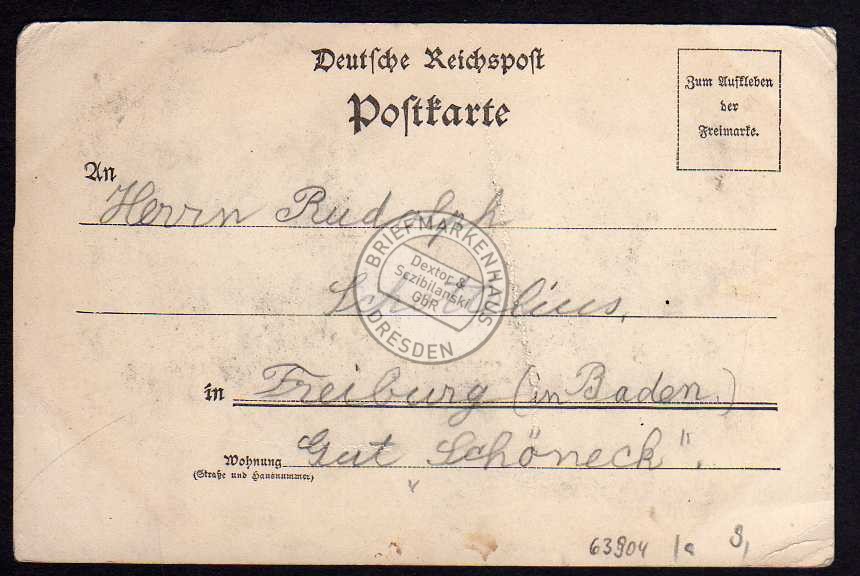 Deutsche Reichspost
Postkarte
Zum Aufkleben
der
Freimarke.
An
Herrn Rudolph
in Freiburg (in Baden.)
Wohnung Gut Schöneck".
(Straße und Hausnummer)
63904 1a 9,
BRIEFMARKENHAUS
Dextor &
Sezibilanski
GbR
DRESDEN